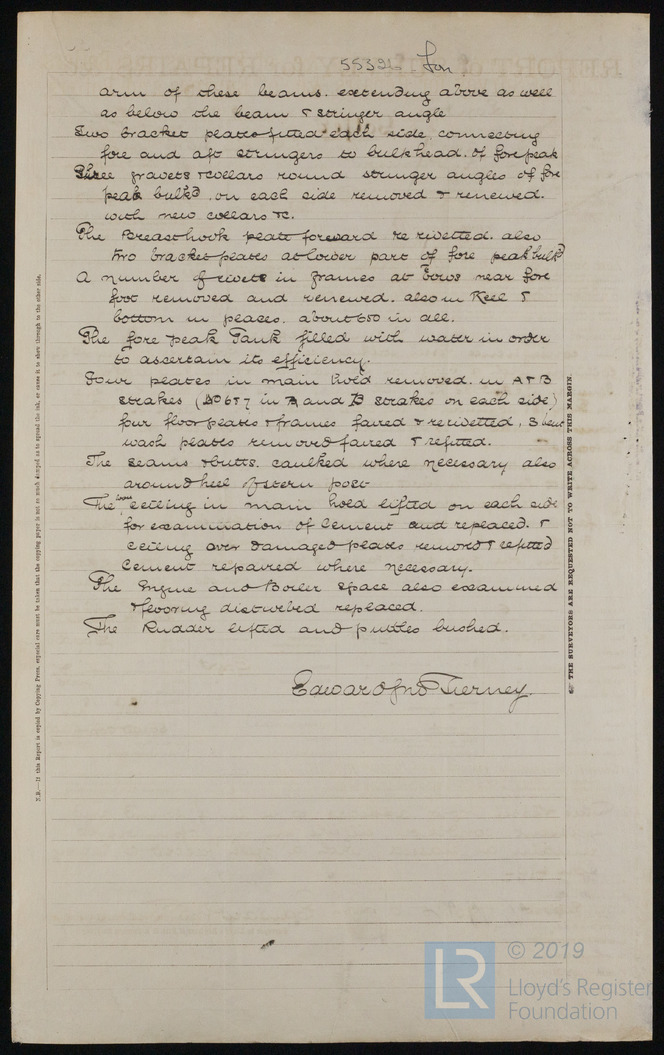 55396 Lon
arm of these beams. extending above as well
as below the beam & stringer angle
Two bracket plates fitted each side connecting
fore and aft stringers to bulkhead. of fore peak
Three gravets & collars round stringer angles of fore
peak bulkd. on each side removed & renewed.
with new collars &c.
The Breasthook plate forward re rivetted. also
two bracket plates at lower part of fore peak bulkd
A number of rivets in frames at bows near fore
foot removed and renewed. also in Keel &
bottom in places. about 650 in all.
The fore peak Tank filled with water in order
to ascertain its efficiency.
Four plates in main hold removed. in A & B
Strakes (No 6 & 7 in A and B Strakes on each side)
four floor plates & frames faired & rerivetted, 3
wash plates removed faired & refitted.
The seams & butts. caulked where necessary also
around heel of stern post
The ceiling in main hold lifted on each side
for examination of Cement and replaced. &
Ceiling over damaged plates removed & refitted
Cement repaired where necessary.
The Engine and Boiler Space also examined
& flooring disturbed replaced.
The Rudder lifted and pintles bushed.
Edward Jno Tierney.
N.B.—If this Report is copied by Copying Press, especial care must be taken that the copying paper is not so much damped as to spread the ink, or cause it to show through to the other side.
☞ THE SURVEYORS ARE REQUESTED NOT TO WRITE ACROSS THIS MARGIN.
LR
© 2019
Lloyd's Register
Foundation